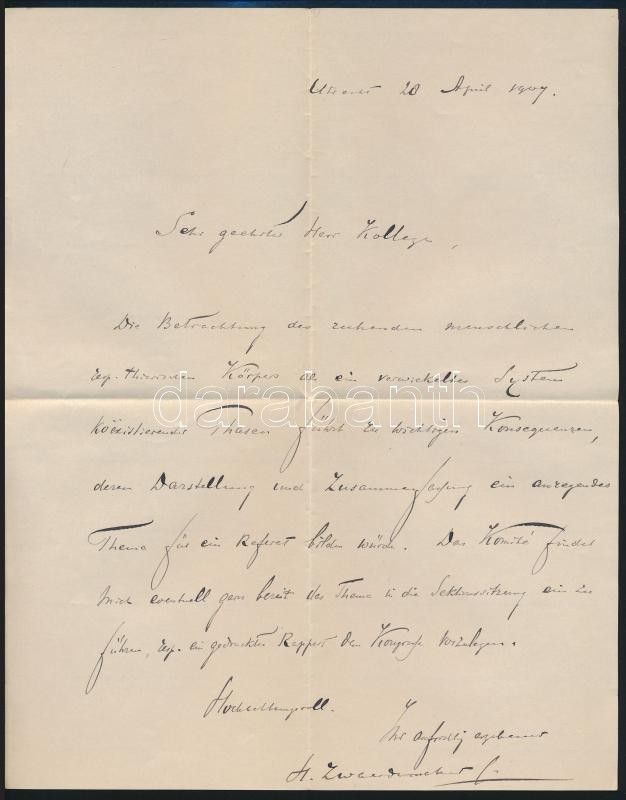 Utrecht 28 April 1907.
Sehr geehrter Herr Kollege,
Die Betrachtung des ruhenden menschlichen
resp. thierischen Körpers als ein verwickeltes System
koëxistierender Phasen führt zu wichtigen Konsequenzen,
deren Darstellung und Zusammenfassung ein anregendes
Thema für ein Referat bilden würde. Das Komité findet
mich eventuell gern bereit das Thema in die Sektionssitzung ein zu
führen, resp. ein gedrucktes Rapport dem Kongresse vorzulegen.
Hochachtungsvoll.
Ihr aufrichtig ergebener
H. Zwaardemaker
darabanth